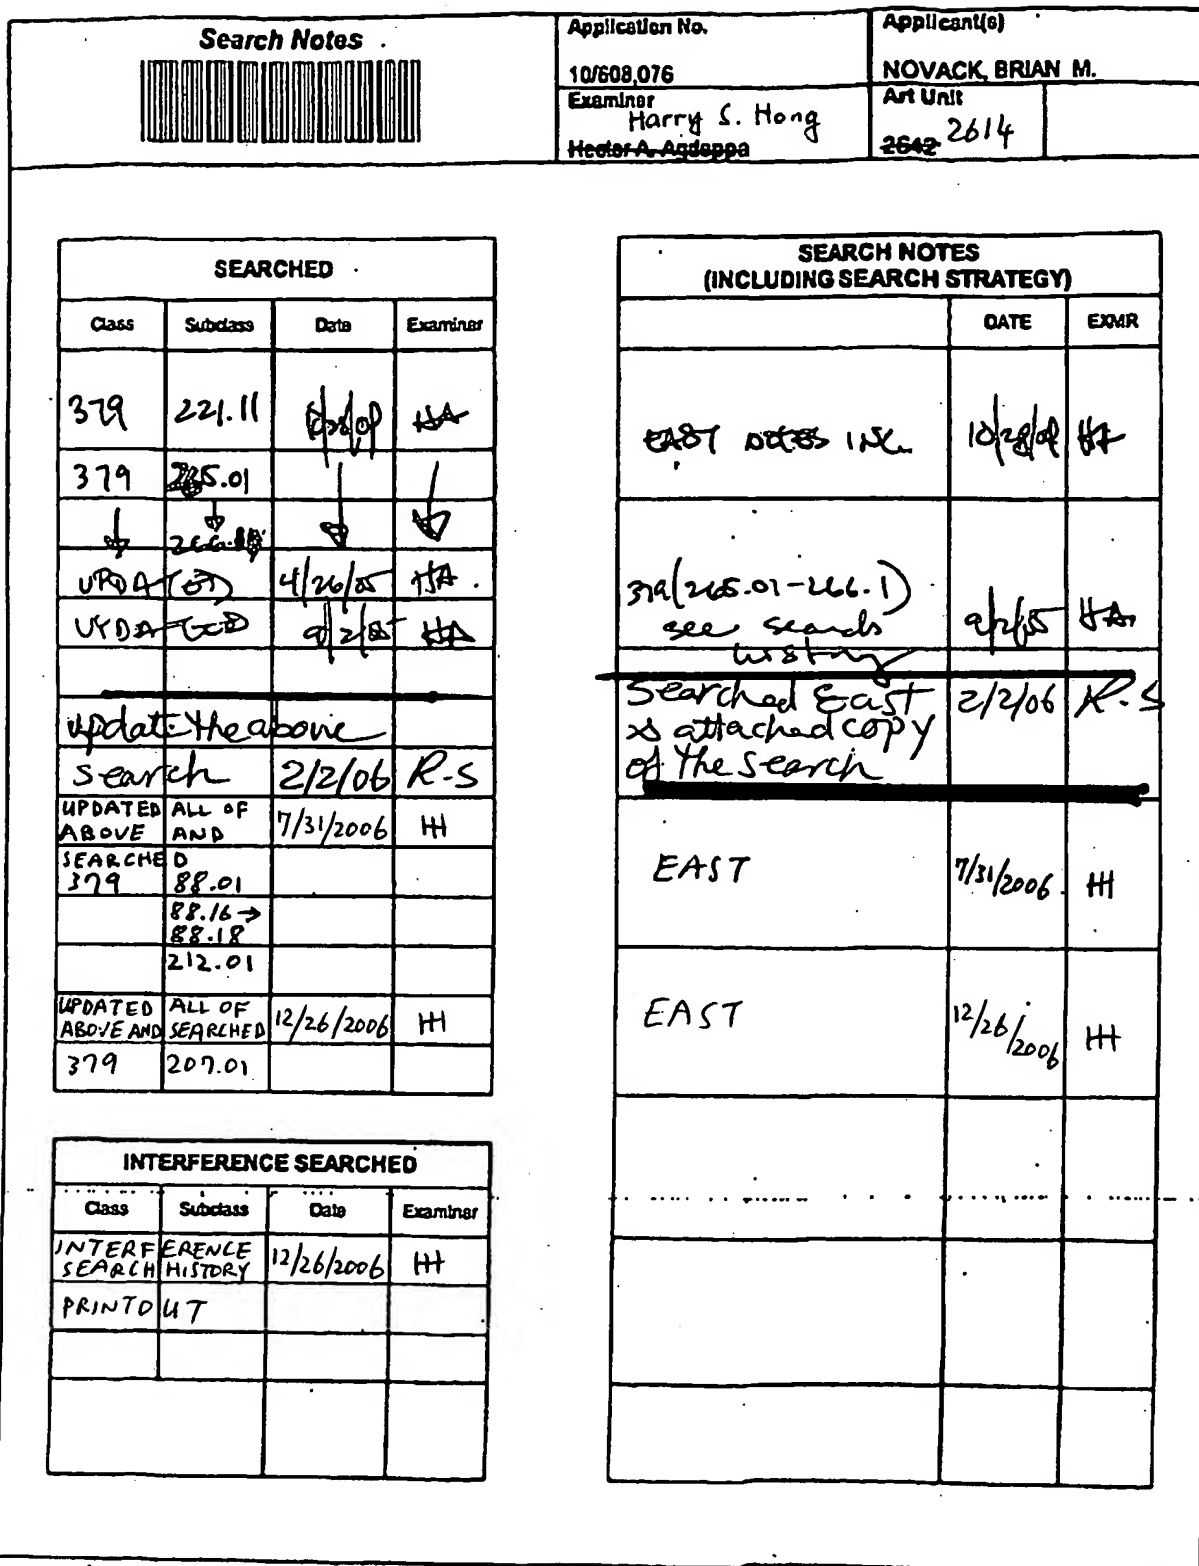 Search Notes
Application No.
10/608,076
Applicant(s)
NOVACK, BRIAN M.
Examiner
Harry S. Hong
Hector A. Agdeppa
Art Unit
2642 2614
SEARCHED
Class Subclass Date Examiner
379 221.11 HA
379 265.01
266.1
UPDATED 4/26/05 HA
UPDATED 9/2/05 HA
update the above
search 2/2/06 R-S
UPDATED ALL OF
ABOVE AND 7/31/2006 HH
SEARCHED
379 88.01
88.16 →
88.18
212.01
UPDATED ALL OF
ABOVE AND SEARCHED 12/26/2006 HH
379 207.01
INTERFERENCE SEARCHED
Class Subclass Date Examiner
INTERFERENCE
SEARCH HISTORY 12/26/2006 HH
PRINTOUT
SEARCH NOTES
(INCLUDING SEARCH STRATEGY)
DATE EXMR
EAST NOTES INC. 10/28/04 HA
379(265.01-266.1)
see search 9/2/05 HA
history
Searched East 2/2/06 R-S
attached copy
of the search
EAST 7/31/2006 HH
EAST 12/26/2006 HH